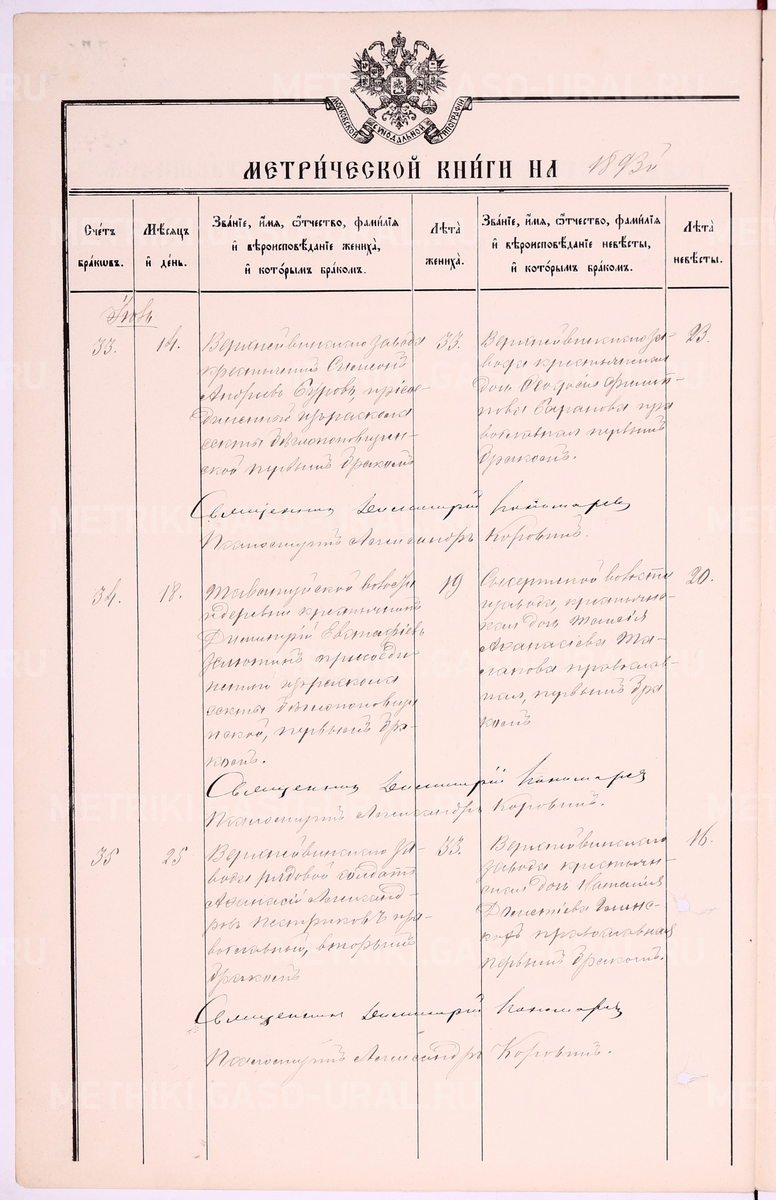 МОСКОВСКОЙ СѴНОДАЛЬНОЙ ТИПОГРАФІИ
МЕТРИ́ЧЕСКОЙ КНИ́ГИ НА 1893й
Сче́тъ бра́кѡвъ.
Мѣ́сѧцъ и҆ де́нь.
Зва́нїе, и҆́мѧ, ѻ҆́тчество, фами́лїѧ и҆ вѣроисповѣ́данїе жениха̀, и҆ кото́рымъ бра́комъ.
Лѣ́та жениха̀.
Зва́нїе, и҆́мѧ, ѻ҆́тчество, фами́лїѧ и҆ вѣроисповѣ́данїе невѣ́сты, и҆ кото́рымъ бра́комъ.
Лѣ́та невѣ́сты.
33.
14.
Верхнейвинскаго завода
крестьянинъ Симеонъ
Андреевъ присое-
диненный изъ раскола
секты бѣглопоповщин-
ской первымъ бракомъ
33.
Верхнейвинскаго за-
вода крестьянская
дочь Ѳеодосія Филип-
пова пра
вославная первымъ
бракомъ.
23.
Священникъ Димитрій Пономарев
Псаломщикъ Александръ Коровинъ.
34.
18.
Таватуйской волости
деревни крестьянинъ
Димитрій Евстафіевъ
присоеди
ненный изъ раскола
секты бѣглопоповщи
нской, первымъ бра-
комъ.
19
Сысертской волости
завода, крестьянс-
кая дочь Таисія
Аѳанасіева
православ-
ная, первымъ бра
комъ
20.
Священникъ Димитрій Пономарев
Псаломщикъ Александръ Коровинъ.
35
25
Верхнейвинскаго за-
вода рядовой солдатъ
Аѳанасій Александ-
ровъ Пестриковъ пра-
вославный, вторымъ
бракомъ
33.
Верхнейвинскаго
завода крестьян-
ская дочь Наталія
православная
первымъ бракомъ.
16.
Священникъ Димитрій Пономарев
Псаломщикъ Александръ Коровинъ.
METRIKI.GASO-URAL.RU